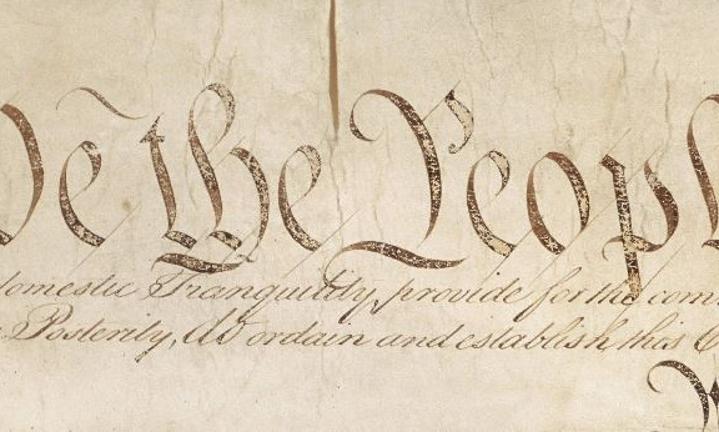 We the People
domestic Tranquility, provide for the com
Posterity, do ordain and establish this C